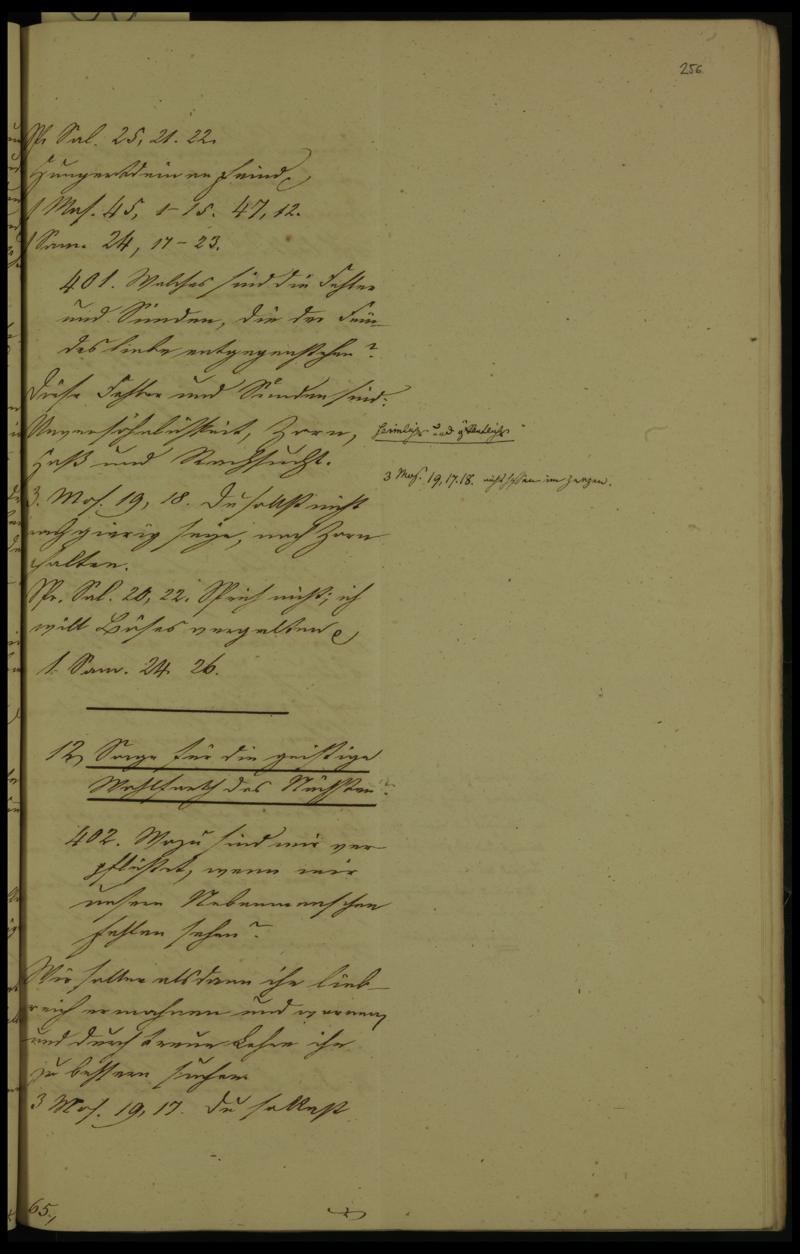 256
Spr. Sal. 25, 21. 22.
Hungert dein en Feind
1 Mos. 45, 1-15. 47, 12.
1 Sam. 24, 17-23.
401. Welches sind die Fehler
und Sünden, die der Fein-
desliebe entgegenstehen?
Diese Fehler und Sünden sind:
Unversöhnlichkeit, Zorn,
Haß und Rachsucht.
3. Mos. 19, 18. Du sollst nicht
rachgierig seyn, noch Zorn
halten.
Spr. Sal. 20, 22. Sprich nicht; ich
will Böses vergelten
1. Sam. 24. 26.
heimliche und
3 Mos. 19, 17. 18. nicht hassen im Herzen.
12, Sorge für die geistige
Wohlfarth des Nächsten
402. Wozu sind wir ver-
pflichtet, wenn wir
unsern Nebenmenschen
fehlen sehen?
Wir sollen alsdann ihn lieb-
reich ermahnen und warnen,
und durch treue Lehre ihn
zu bessern suchen
3 Mos. 19, 17. Du sollst
65.,